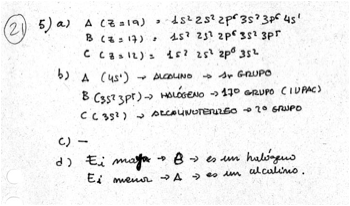 21
5) a) A (Z=19) = 1s² 2s² 2p⁶ 3s² 3p⁶ 4s¹
B (Z=17) = 1s² 2s² 2p⁶ 3s² 3p⁵
C (Z=12) = 1s² 2s² 2p⁶ 3s²
b) A (4s¹) → ALCALINO → 1er GRUPO
B (3s² 3p⁵) → HALÓGENO → 17º GRUPO (IUPAC)
C (3s²) → ALCALINOTERREO → 2º GRUPO
c) —
d) Ei mayor → B → es un halógeno
Ei menor → A → es un alcalino.